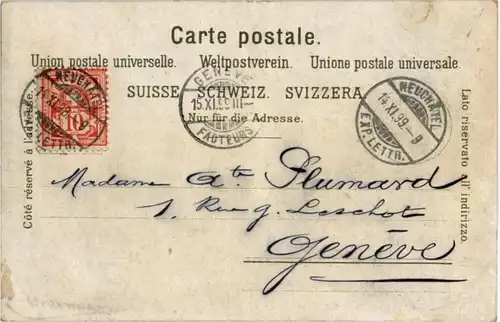 Carte postale.
Union postale universelle. Weltpostverein. Unione postale universale.
SUISSE. SCHWEIZ. SVIZZERA.
Nur für die Adresse.
Côté réservé à l'adresse.
Lato riservato all' indirizzo.
NEUCHATEL
10
LETTR.
GENÈVE
15.XI.99.III-
FACTEURS
NEUCHATEL
14.XI.99.-9
EXP. LETTR.
Madame Ate Plumard
1. Rue g. Leschot
Genève